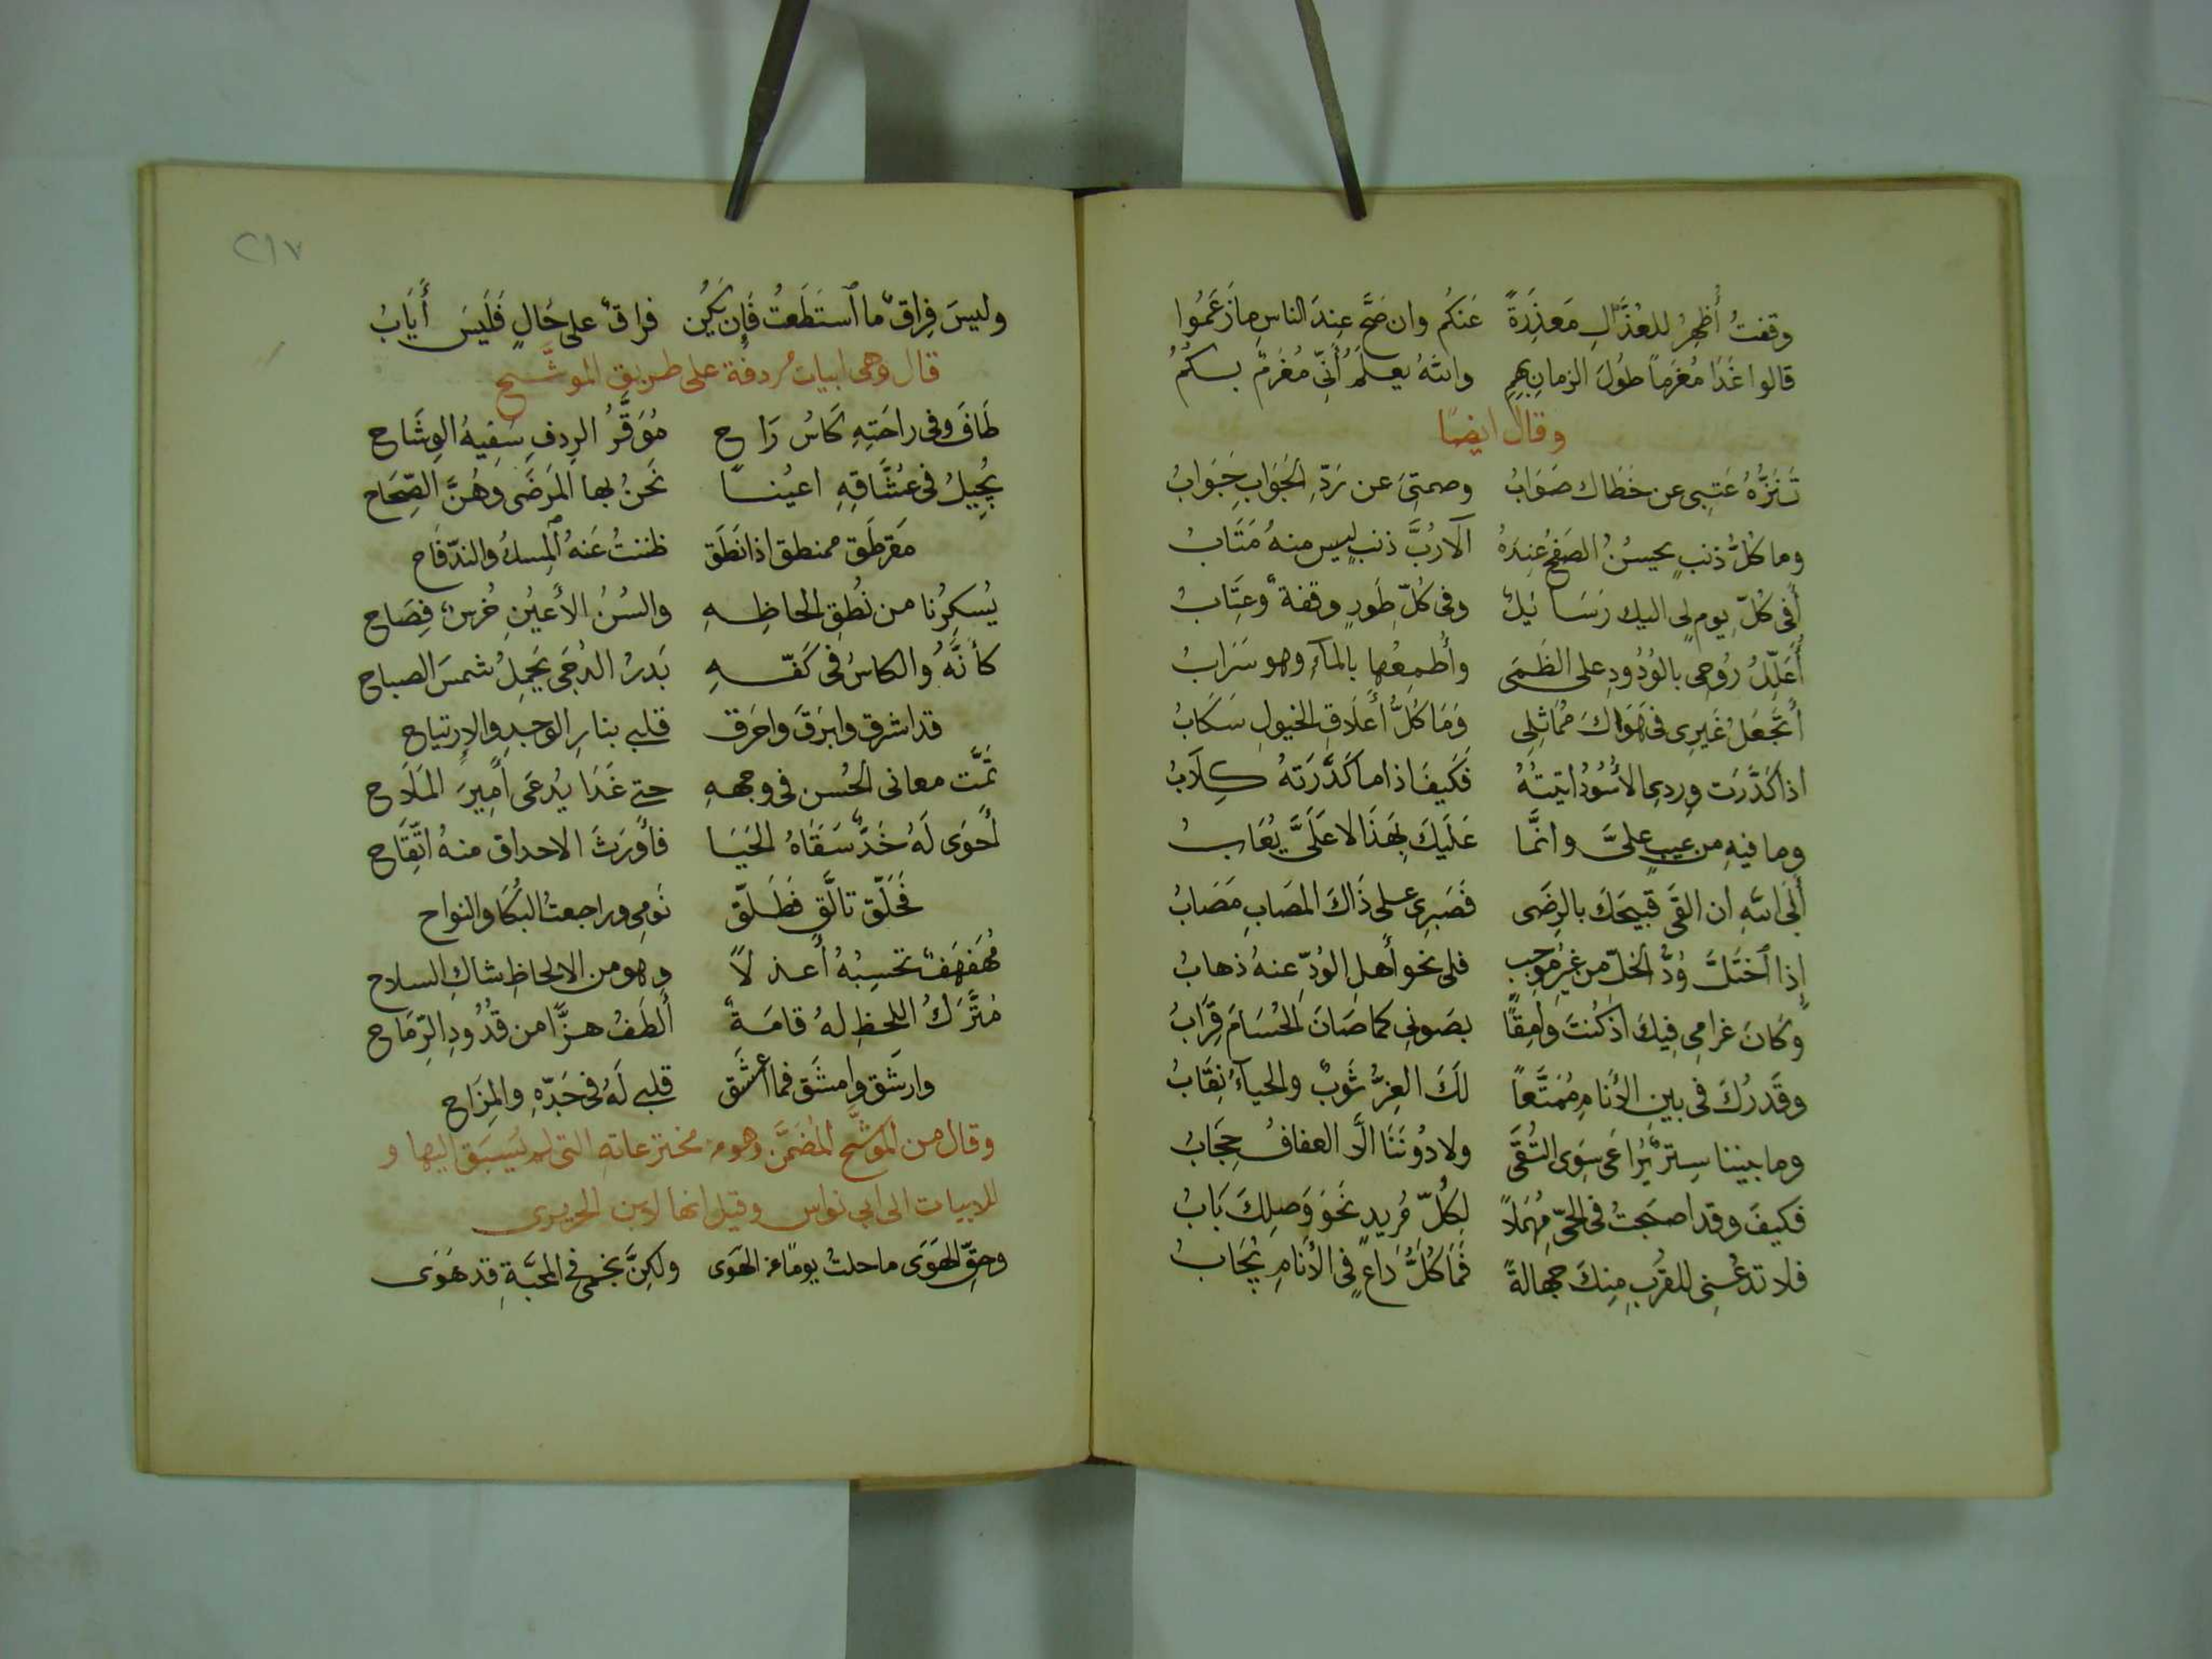 وقفتُ أُظهِرُ للعُذَّالِ مَعذِرَةً عَنكُم وان صَحَّ عِندَ الناسِ ما زَعَمُوا
قالوا غَدَا مُغرَماً طُولَ الزمانِ بِهِمِ واللهُ يعلَمُ أَنّي مُغرَمٌ بكُمُ
وقال ايضًا
تَنَزُّهُ عَتبِي عن خَطَاك صَوَابُ وصمتِيَ عن رَدِّ الجَوَابِ جَوَابُ
وما كُلُّ ذنبٍ يحسنُ الصَفحُ عِندَهُ ألا رُبَّ ذنبٍ ليس منهُ مَتَابُ
أَفي كُلِّ يومٍ لي اليك رَسَائِلٌ وفي كُلِّ طَورٍ وقفةٌ وعِتَابُ
أُعَلِّلُ رُوحي بالوُرُودِ على الظَمَى وأُطمِعُها بالمآءِ وهو سَرَابُ
أَتَجعَلُ غَيرِي في هَوَاكَ مُمَاثِلِي وَمَا كُلُّ أَعلَاقِ الخيولِ سَكَابُ
اذا كَدَّرَت وِردِي الأُسُودُ اتيتُهُ فَكَيفَ اذا ما كَدَّرَتهُ كِلَابُ
وما فيهِ من عيبٍ عليَّ وانَّما عَلَيكَ بِهَذَا لا عَلَيَّ يُعَابُ
أَبَى اللهِ ان القَى قَبيحَكَ بالرِضَى فَصَبرِي على ذَاكَ المصَابِ مَصَابُ
إِذا ٱختَلَّ وُدُّ الخِلِّ من غَيرِ مُوجِبٍ فلي نحو أَهلِ الوُدِّ عنهُ ذهابُ
وَكَانَ غرامي فِيكَ اذ كُنتَ وَامِقًا بصَوني كما صَانَ الحُسَامَ قِرَابُ
وقَدرُكَ في بينِ الأَنامِ مُمَتَّعاً لَكَ العِزُّ ثَوبٌ والحيآءُ نِقَابُ
وما بيننا سِترٌ يُرَاعَى سِوَى التُقَى ولا دُونَنَا الَّا العفافُ حِجَابُ
فكيفَ وقد اصبَحتُ في الحَيِّ مُهمَلاً لِكُلِّ مُريدٍ نَحوَ وَصلِكَ بَابُ
فلا تدعُني للقُربِ مِنكَ جهالةً فَمَا كُلُّ دَاعٍ في الأَنامِ يُجَابُ
٢١٧
وليسَ فِراقٌ ما ٱستَطَعتُ فَإِن يَكُن فراقٌ على حَالٍ فَلَيسَ أَيَابُ
قال وهي ابيات مُردفة على طريق الموشَّح
طَافَ وفي راحَتِهِ كَاسُ رَاح مُوَقَّرُ الرِدفِ سَفِيهُ الوِشَاح
يُجِيلُ في عُشَّاقِهِ اعيُنًا نَحنُ بها المَرضَى وَهُنَّ الصِّحَاح
مَقرطَق ممنطق اذا نَطَق ظننتُ عَنهُ ٱلمِسكُ والندّ فَاح
يُسكِرُنا من نُطقِ الحاظِهِ والسُنُ الأَعيُنِ خُرسٌ فِصَاح
كأَنَّهُ والكاسُ في كَفِّهِ بَدرُ الدُجَى يَحمِلُ شمسَ الصباح
قد اشرق وابرَقَ واحرَق قلبي بنارِ الوجدِ والإِرتياح
تمَّت معاني الحُسن في وجههِ حتى غَدَا يُدعَى أَمِيرَ المَلَاح
أَحوَى لَهُ خَدٌّ سَقَاهُ الحَيَا فأَورَثَ الاحداق منهُ اتِّقَاح
فَحَلّق تالَّق فَطَلّق نَومي وراجعتُ البُكَا والنواح
مُهَفهَفٌ تحسِبُهُ أَعزلاً وهو من الالحاظِ شاكِ السلاح
مُتَّرَكُ اللحظِ لهُ قامَةٌ أَلطَفُ هزًّا من قدُودِ الرِّمَاح
وارشَق وامشَق فما اعشَق قلبي لَهُ في جَدّهِ والمِزَاح
وقال من المُوَشَّح المُضَمَّن وهو من مخترعاتهِ التي لم يُسبَق اليها و
للابيات الى ابي نواس وقيل انها لابن الحريري
وحقِّ الهَوَى ما حلتُ يومًا عن الهَوَى ولكِنَّ نجمي في المحبَّةِ قد هَوَى